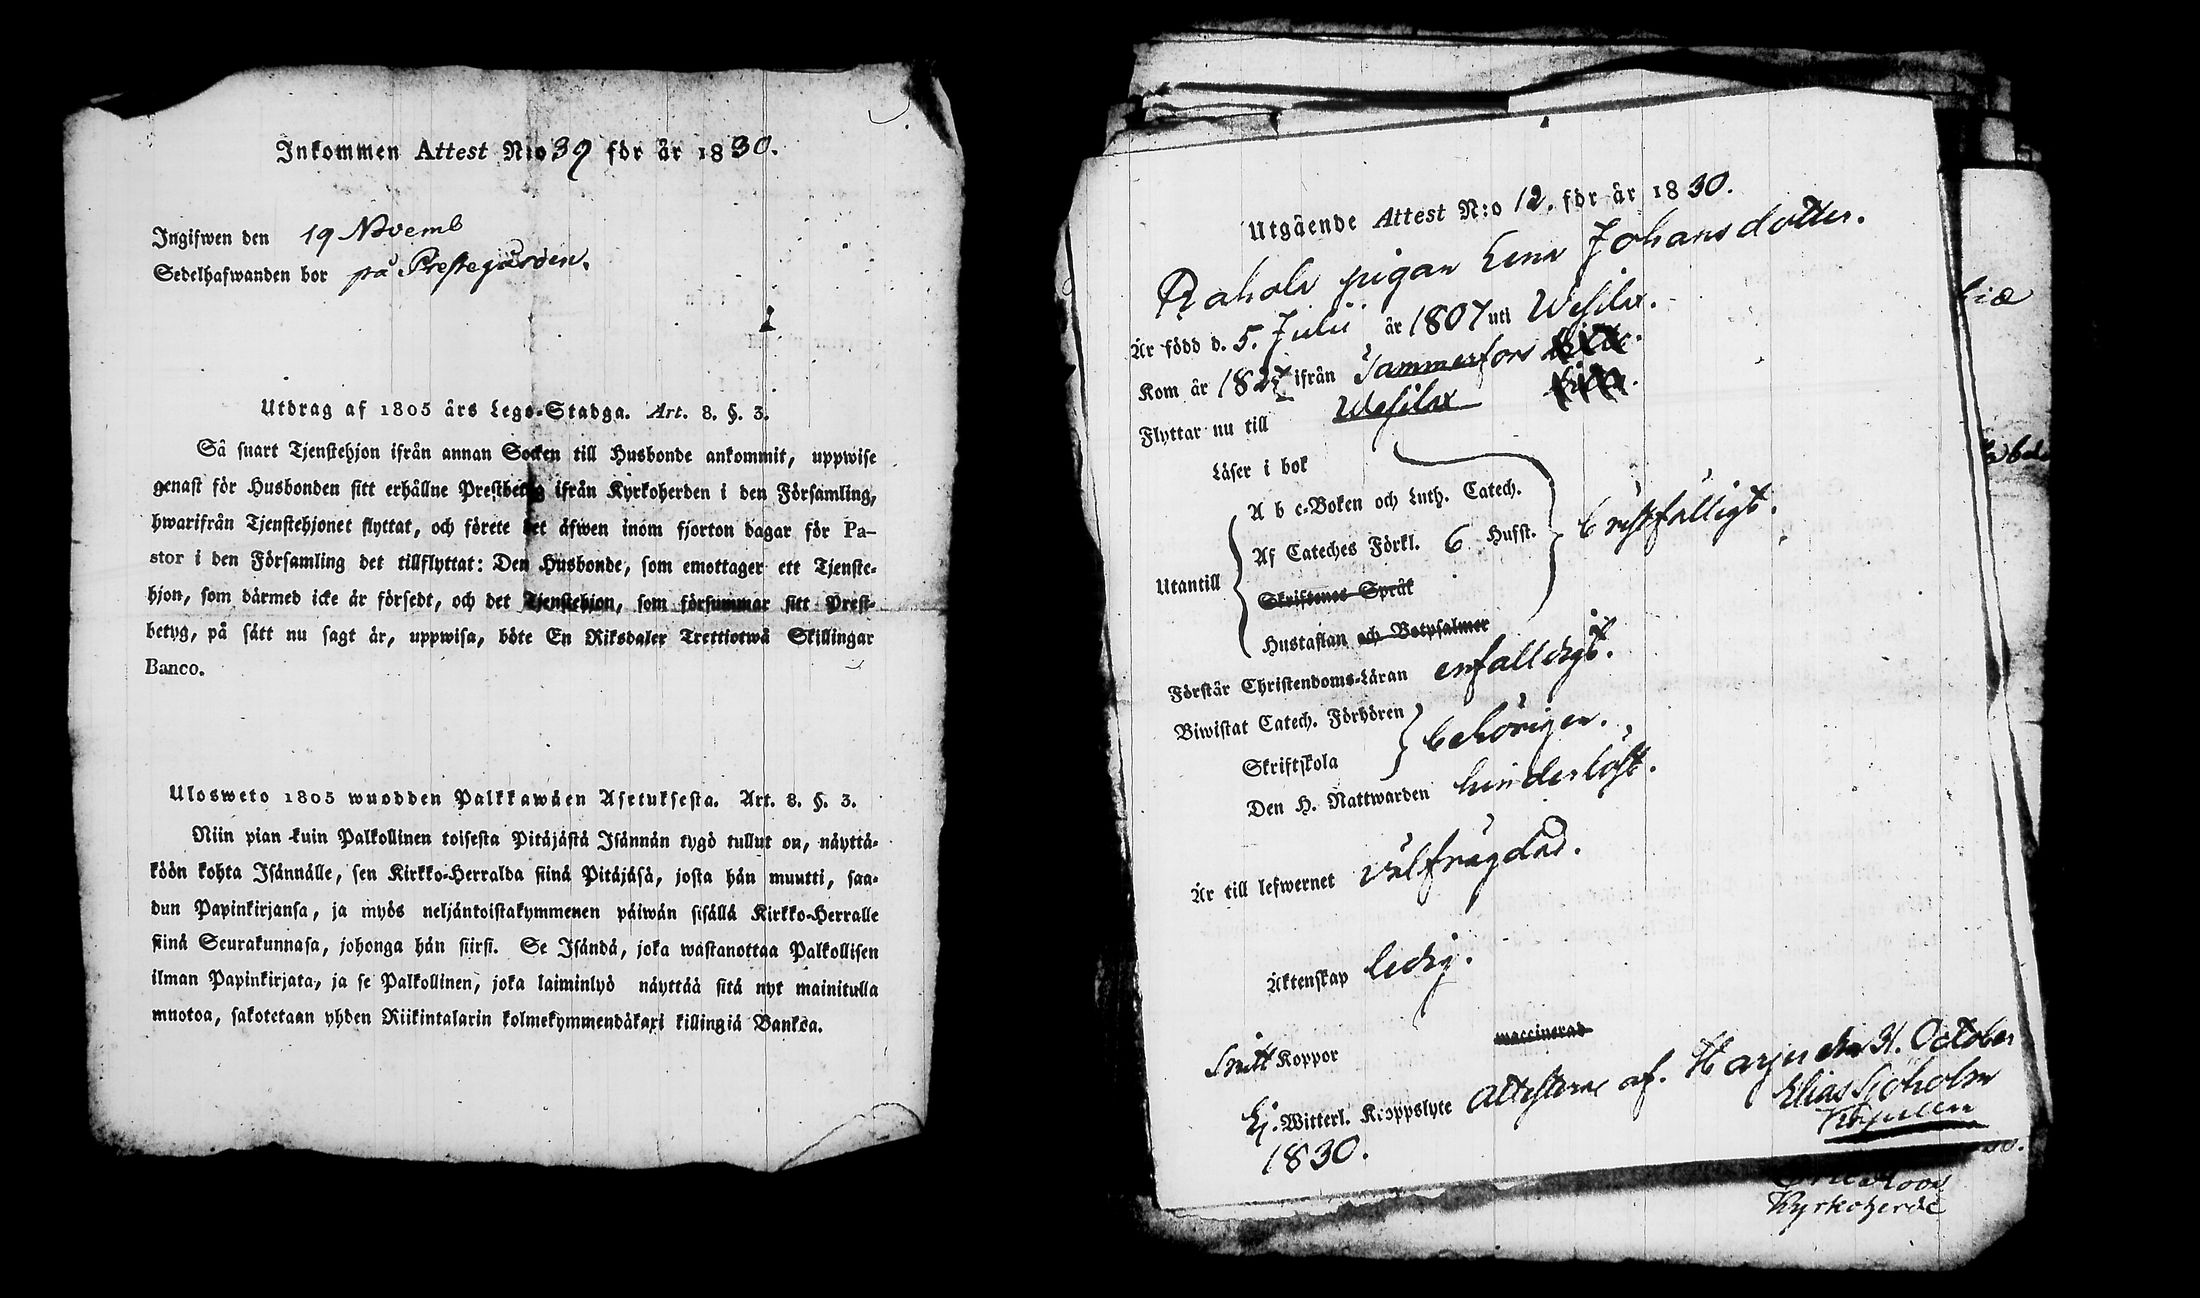 Inkommen Attest N:o 39 för år 1830.
Ingifwen den 19 Novemb
Sedelhafwanden bor på Prestegården.
Utdrag af 1805 års Lego-Stadga. Art. 8. §. 3.
Så snart Tjenstehjon ifrån annan Socken till Husbonde ankommit, uppwise
genast för Husbonden sitt erhållne Prestbetyg ifrån Kyrkoherden i den Församling,
hwarifrån Tjenstehjonet flyttat, och förete det äfwen inom fjorton dagar för Pa-
stor i den Församling det tillflyttat: Den Husbonde, som emottager ett Tjenste-
hjon, som därmed icke är försedt, och det Tjenstehjon, som försummar sitt Prest-
betyg, på sätt nu sagt är, uppwisa, böte En Riksdaler Trettiotwå Skillingar
Banco.
Ulosweto 1805 wuodden Palkkawäen Asetuksesta. Art. 8. §. 3.
Niin pian kuin Palkollinen toisesta Pitäjästä Isännän tygö tullut on, näyttä-
köön kohta Isännälle, sen Kirkko-Herralda siinä Pitäjäsä, josta hän muutti, saa-
dun Papinkirjansa, ja myös neljäntoistakymmenen päiwän sisällä Kirkko-Herralle
siinä Seurakunnasa, johonga hän siirsi. Se Isändä, joka wastanottaa Palkollisen
ilman Papinkirjata, ja se Palkollinen, joka laiminlyö näyttää sitä nyt mainitulla
muotoa, sakotetaan yhden Riikintalarin kolmekymmendäkaxi killingiä Bankoa.
Utgående Attest N:o 12. för år 1830.
Rahola pigan Lena Johansdotter.
Är född d. 5. Julii år 1807 uti Wesilax.
Kom år 1827 ifrån Tammerfors
Flyttar nu till Wesilax
Läser i bok
A b c-Boken och Luth. Catech.
Af Cateches Förkl. 6 Hufst. bristfälligt.
Utantill
Skriftenes Språk
Hustaflan och Botpsalmer
Förstår Christendoms-Läran enfalldigt.
Biwistat Catech. Förhören behörigen.
Skriftskola
Den H. Nattwarden hinderlöst.
Är till lefwernet välfrägdad.
Äktenskap ledig.
Smitt Koppor waccinerad
Ej. Witterl. Kroppslyte attesteras af. Harju den 31. October
1830.
Elias Sjöholm
Kyrkoherde